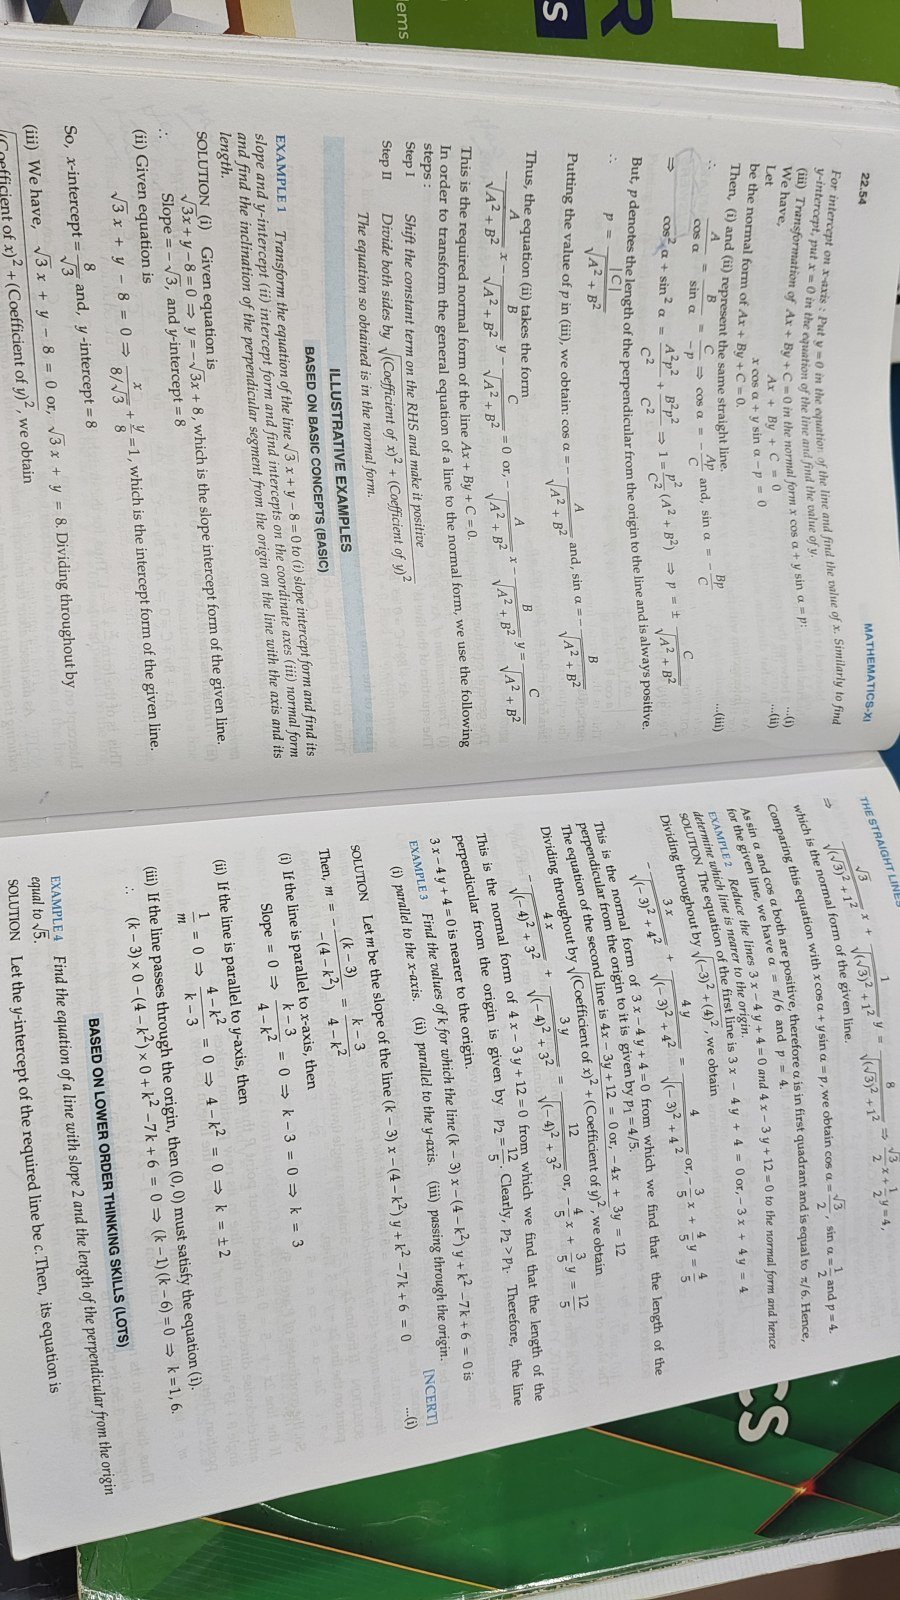 22.54 MATHEMATICS-XI
For intercept on x-axis : Put y = 0 in the equation of the line and find the value of x. Similarly to find
y-intercept, put x = 0 in the equation of the line and find the value of y.
(iii) Transformation of Ax + By + C = 0 in the normal form x cos α + y sin α = p:
We have, Ax + By + C = 0 ...(i)
Let x cos α + y sin α − p = 0 ...(ii)
be the normal form of Ax + By + C = 0.
Then, (i) and (ii) represent the same straight line.
∴ A/cos α = B/sin α = C/−p ⇒ cos α = − Ap/C and, sin α = − Bp/C ...(iii)
⇒ cos² α + sin² α = A²p²/C² + B²p²/C² ⇒ 1 = p²/C² (A² + B²) ⇒ p = ± C/√(A² + B²)
But, p denotes the length of the perpendicular from the origin to the line and is always positive.
∴ p = |C|/√(A² + B²)
Putting the value of p in (iii), we obtain: cos α = − A/√(A² + B²) and, sin α = − B/√(A² + B²)
Thus, the equation (ii) takes the form
− A/√(A² + B²) x − B/√(A² + B²) y − C/√(A² + B²) = 0 or, − A/√(A² + B²) x − B/√(A² + B²) y = C/√(A² + B²)
This is the required normal form of the line Ax + By + C = 0.
In order to transform the general equation of a line to the normal form, we use the following
steps :
Step I Shift the constant term on the RHS and make it positive
Step II Divide both sides by √((Coefficient of x)² + (Coefficient of y)²
The equation so obtained is in the normal form.
ILLUSTRATIVE EXAMPLES
BASED ON BASIC CONCEPTS (BASIC)
EXAMPLE 1 Transform the equation of the line √3 x + y − 8 = 0 to (i) slope intercept form and find its
slope and y-intercept (ii) intercept form and find intercepts on the coordinate axes (iii) normal form
and find the inclination of the perpendicular segment from the origin on the line with the axis and its
length.
SOLUTION (i) Given equation is
√3x + y − 8 = 0 ⇒ y = −√3x + 8, which is the slope intercept form of the given line.
∴ Slope = −√3, and y-intercept = 8
(ii) Given equation is
√3 x + y − 8 = 0 ⇒ x/(8/√3) + y/8 = 1, which is the intercept form of the given line.
So, x-intercept = 8/√3 and, y-intercept = 8
(iii) We have, √3 x + y − 8 = 0 or, √3 x + y = 8. Dividing throughout by
√((Coefficient of x)² + (Coefficient of y)², we obtain
THE STRAIGHT LINES
⇒ √3/√((√3)² + 1²) x + 1/√((√3)² + 1²) y = 8/√((√3)² + 1²) ⇒ √3/2 x + 1/2 y = 4,
which is the normal form of the given line.
Comparing this equation with x cos α + y sin α = p, we obtain cos α = √3/2, sin α = 1/2 and p = 4.
As sin α and cos α both are positive, therefore α is in first quadrant and is equal to π/6. Hence,
for the given line, we have α = π/6 and p = 4.
EXAMPLE 2 Reduce the lines 3 x − 4 y + 4 = 0 and 4 x − 3 y + 12 = 0 to the normal form and hence
determine which line is nearer to the origin.
SOLUTION The equation of the first line is 3 x − 4 y + 4 = 0 or, − 3 x + 4 y = 4
Dividing throughout by √(−3)² + (4)², we obtain
− 3 x/√((−3)² + 4²) + 4 y/√((−3)² + 4²) = 4/√((−3)² + 4²) or, − 3/5 x + 4/5 y = 4/5
This is the normal form of 3 x − 4 y + 4 = 0 from which we find that the length of the
perpendicular from the origin to it is given by p₁ = 4/5.
The equation of the second line is 4x − 3y + 12 = 0 or, − 4x + 3y = 12
Dividing throughout by √(Coefficient of x)² + (Coefficient of y)², we obtain
− 4 x/√((−4)² + 3²) + 3 y/√((−4)² + 3²) = 12/√((−4)² + 3²) or, − 4/5 x + 3/5 y = 12/5
This is the normal form of 4 x − 3 y + 12 = 0 from which we find that the length of the
perpendicular from the origin is given by p₂ = 12/5. Clearly, p₂ > p₁. Therefore, the line
3 x − 4 y + 4 = 0 is nearer to the origin.
EXAMPLE 3 Find the values of k for which the line (k − 3) x − (4 − k²) y + k² − 7 k + 6 = 0 is
(i) parallel to the x-axis. (ii) parallel to the y-axis. (iii) passing through the origin. [NCERT]
SOLUTION Let m be the slope of the line (k − 3) x − (4 − k²) y + k² − 7 k + 6 = 0 ...(i)
Then, m = − (k − 3)/−(4 − k²) = k − 3/4 − k²
(i) If the line is parallel to x-axis, then
Slope = 0 ⇒ k − 3/4 − k² = 0 ⇒ k − 3 = 0 ⇒ k = 3
(ii) If the line is parallel to y-axis, then
1/m = 0 ⇒ 4 − k²/k − 3 = 0 ⇒ 4 − k² = 0 ⇒ k = ± 2
(iii) If the line passes through the origin, then (0, 0) must satisfy the equation (i).
∴ (k − 3) × 0 − (4 − k²) × 0 + k² − 7 k + 6 = 0 ⇒ (k − 1) (k − 6) = 0 ⇒ k = 1, 6.
BASED ON LOWER ORDER THINKING SKILLS (LOTS)
EXAMPLE 4 Find the equation of a line with slope 2 and the length of the perpendicular from the origin
equal to √5.
SOLUTION Let the y-intercept of the required line be c. Then, its equation is